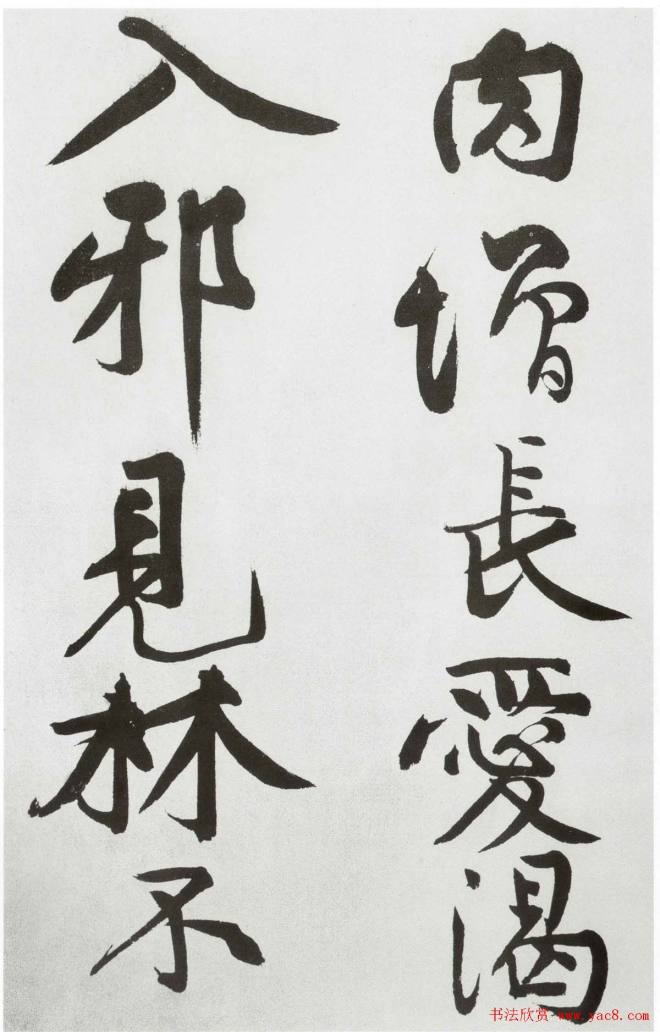 肉增長愛渴
入邪見林不
书法欣赏-www.yac8.com